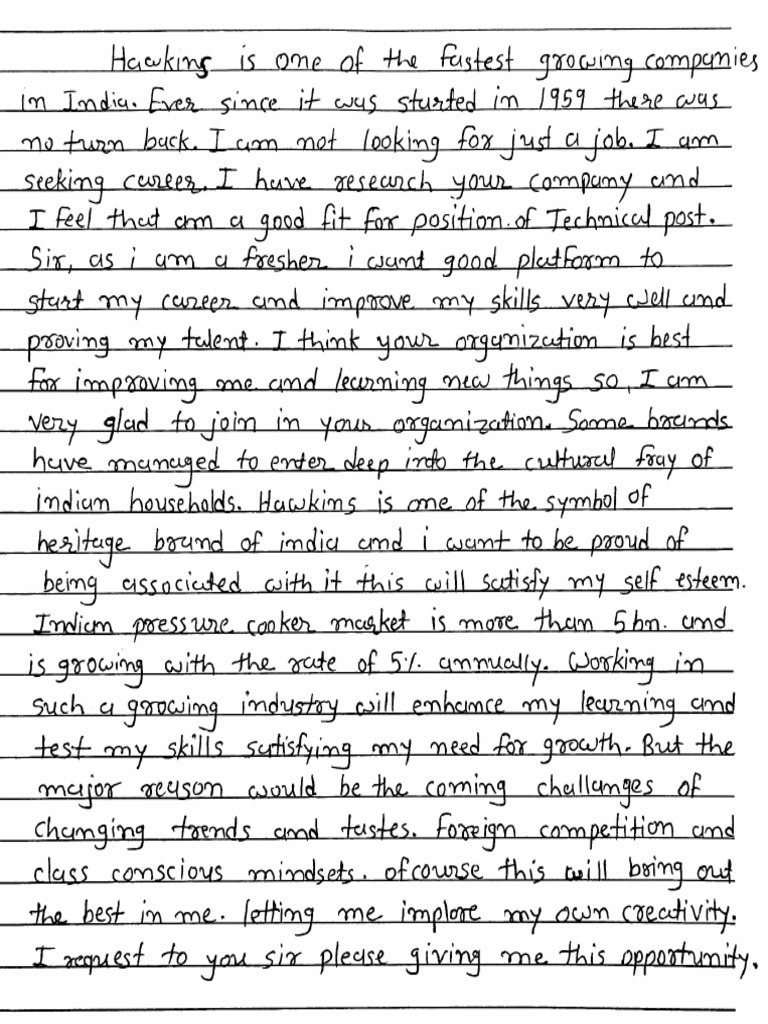 Hawkins is one of the fastest growing companies
in India. Ever since it was started in 1959 there was
no turn back. I am not looking for just a job. I am
seeking career. I have research your company and
I feel that am a good fit for position of Technical post.
Sir, as i am a fresher i want good platform to
start my career and improve my skills very well and
proving my talent. I think your organization is best
for improving me and learning new things so, I am
very glad to join in your organization. Some brands
have managed to enter deep into the cultural fray of
indian households. Hawkins is one of the symbol of
heritage brand of india and i want to be proud of
being associated with it this will satisfy my self esteem.
Indian pressure cooker market is more than 5bn. and
is growing with the rate of 5% annually. Working in
such a growing industry will enhance my learning and
test my skills satisfying my need for growth. But the
major reason would be the coming challanges of
changing trends and tastes. Foreign competition and
class conscious mindsets. ofcourse this will bring out
the best in me. letting me implore my own creativity.
I request to you sir please giving me this opportunity.